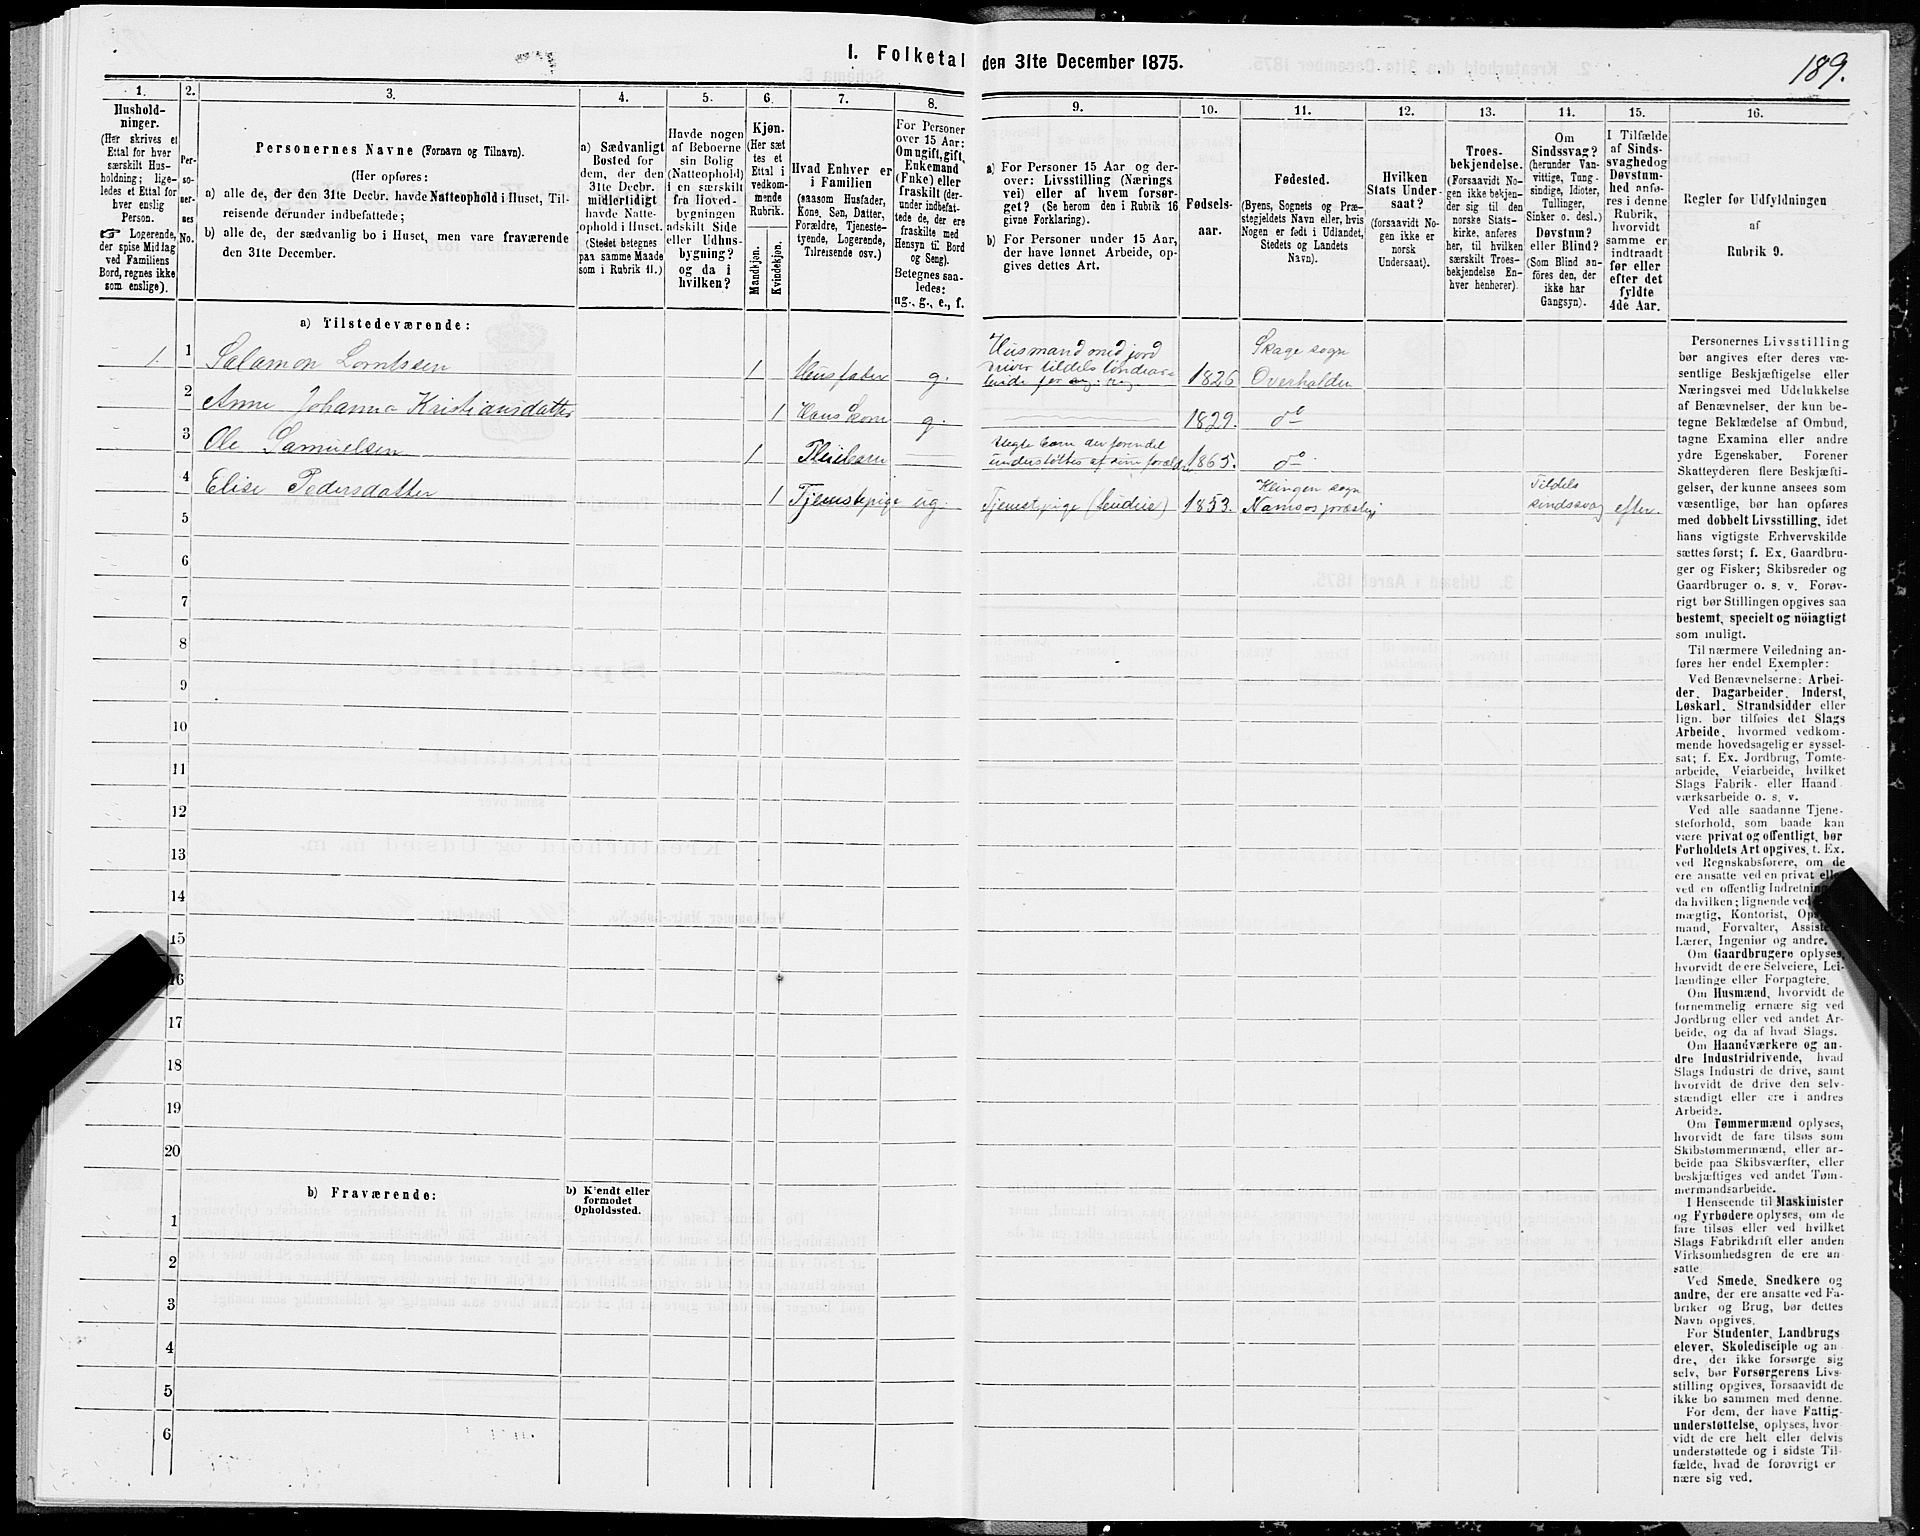 I. Folketal den 31te December 1875.
189.
1.
2.
3.
4.
5.
6.
7.
8.
9.
10.
11.
12.
13.
14.
15.
16.
Hushold-
ninger.
(Her skrives et
Ettal for hver
særskilt Hus-
holdning; lige-
ledes et Ettal for
hver enslig
Person.
☞ Logerende,
der spise Middag
ved Familiens
Bord, regnes ikke
som enslige).
Per-
so-
ner-
nes
No.
Personernes Navne (Fornavn og Tilnavn).
(Her opføres:
a) alle de, der den 31te Decbr. havde Natteophold i Huset, Til-
reisende derunder indbefattede;
b) alle de, der sædvanlig bo i Huset, men vare fraværende
den 31te December.
a) Sædvanligt
Bosted for
dem, der den
31te Decbr.
midlertidigt
havde Natte-
ophold i Huset.
(Stedet betegnes
paa samme Maade
som i Rubrik 11.)
Havde nogen
af Beboerne
sin Bolig
(Natteophold)
i en særskilt
fra Hoved-
bygningen
adskilt Side
eller Udhus-
bygning?
og da i
hvilken?
Kjøn.
(Her sæt
tes et
Ettal i
vedkom-
mende
Rubrik.
Mandkjøn.
Kvindekjøn.
Hvad Enhver er
i Familien
(saasom Husfader,
Kone, Søn, Datter,
Forældre, Tjeneste-
tyende, Logerende,
Tilreisende osv.)
For Personer
over 15 Aar:
Om ugift, gift,
Enkemand
(Enke) eller
fraskilt (der-
under indbefat-
tede de, der ere
fraskilte med
Hensyn til Bord
og Seng).
Betegnes saa-
ledes:
ug., g., e., f.
a) For Personer 15 Aar og der-
over: Livsstilling (Nærings
vei) eller af hvem forsør-
get? (Se herom den i Rubrik 16
givne Forklaring).
b) For Personer under 15 Aar,
der have lønnet Arbeide, op-
gives dettes Art.
Fødsels-
aar.
Fødested.
(Byens, Sognets og Præ-
stegjeldets Navn eller, hvis
Nogen er født i Udlandet,
Stedets og Landets
Navn).
Hvilken
Stats Under-
saat?
(forsaavidt No-
gen ikke er
norsk
Undersaat).
Troes-
bekjendelse.
(Forsaavidt No-
gen ikke bekjen-
der sig til den
norske Stats-
kirke, anføres
her, til hvilken
særskilt Troes-
bekjendelse En-
hver henhører).
Om
Sindssvag?
(herunder Van-
vittige, Tung-
sindige, Idioter,
Tullinger,
Sinker o. desl.)
Døvstum?
eller Blind?
(Som Blind an-
føres den, der
ikke har
Gangsyn).
I Tilfælde
af Sinds-
svaghed og
Døvstum-
hed anfø-
res i denne
Rubrik,
hvorvidt
samme er
indtraadt
før eller
efter det
fyldte
4de Aar.
Regler før Udfyldningen
af
Rubrik 9.
a) Tilstedeværende:
1. 1 Salamon Lorntssen 1 Husfader g. Husmand med jord 1826 Skage sogn Overhalden
2 Anne Johanna Kristiansdatter 1 Hans kone g. 1829. do
3 Ole Samuelsen 1 Pleiebarn understøttes af sine 1865. do
4 Elise Pedersdatter 1 Tjenstepige ug. Tjenstepige 1853. Klingen sogn Namsos Tildels sindssvag efter.
5
6
7
8
9
10
11
12
13
14
15
16
17
18
19
20
b) Fraværende:
b) Kjendt eller
formodet
Opholdssted.
1
2
3
4
5
6
Personernes Livsstilling
bør angives efter deres væ-
sentlige Beskjæftigelse eller
Næringsvei med Udelukkelse
af Benævnelser, der kun be-
tegne Beklædelse af Ombud,
tagne Examina eller andre
ydre Egenskaber. Forener
Skatteyderen flere Beskjæfti-
gelser, der kunne ansees som
væsentlige, bør han opføres
med dobbelt Livsstilling, idet
hans vigtigste Erhvervskilde
sættes først; f. Ex. Gaardbru-
ger og Fisker; Skibsreder og
Gaardbruger o. s. v. Forøv-
rigt bør Stillingen opgives saa
bestemt, specielt og nöiagtigt
som muligt.
Til nærmere Veiledning an-
føres her endel Exempler:
Ved Benævnelserne: Arbei-
der, Dagarbeider, Inderst,
Løskarl, Strandsidder eller
lign. bør tilføies det Slags
Arbeide, hvormed vedkom-
mende hovedsagelig er syssel-
sat; f. Ex. Jordbrug, Tomte-
arbeide, Veiarbeide, hvilket
Slags Fabrik- eller Haand
værksarbeide o. s. v.
Ved alle saadanne Tjene-
steforhold, som baade kan
være privat og offentligt, bør
Forholdets Art opgives, t. Ex.
ved Regnskabsførere, om de
ere ansatte ved en privat eller
ved en offentlig Indretning
da hvilken; lignende ved
mægtig, Kontorist, Op
mand, Forvalter, Assiste
Lærer, Ingeniør og andre.
Om Gaardbrugere oplyses,
hvorvidt de ere Selveiere, Lei-
lændinge eller Forpagtere.
Om Husmænd, hvorvidt de
fornemmelig ernære sig ved
Jordbrug eller ved andet Ar-
beide, og da af hvad Slags.
Om Haandværkere og an-
dre Industridrivende, hvad
Slags Industri de drive, samt
hvorvidt de drive den selv-
stændigt eller ere i andres
Arbeide.
Om Tømmermænd oplyses,
hvorvidt de fare tilsøs som
Skibstømmermænd, eller ar-
beide paa Skibsværfter, eller
beskjæftiges ved andet Tøm-
mermandsarbeide.
I Henseende til Maskinister
og Fyrbødere oplyses, om de
fare tilsøs eller ved hvilket
Slags Fabrikdrift eller anden
Virksomhedsgren de ere an-
satte.
Ved Smede, Snedkere og
andre, der ere ansatte ved Fa-
briker og Brug, bør dettes
Navn opgives.
For Studenter, Landbrugs
elever, Skoledisciple og an
dre, der ikke forsørge sig
selv, bør Forsørgerens Livs-
stilling opgives, forsaavidt de
ikke bo sammen med denne.
For dem, der have Fattig-
understøttelse, oplyses, hvor-
vidt de ere helt eller delvis
understøttede og i sidste Til-
fælde, hvad de forøvrigt er
nære sig ved.